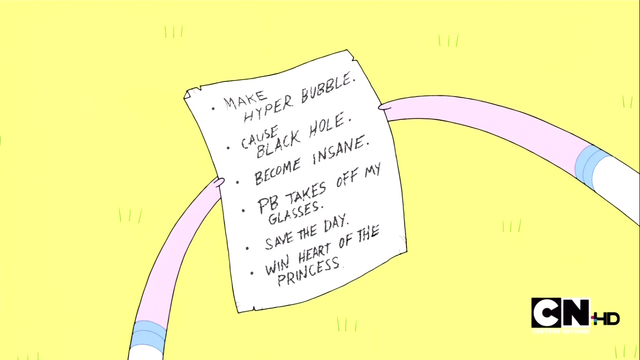 • MAKE
HYPER BUBBLE.
• CAUSE
BLACK HOLE.
• BECOME INSANE.
• PB TAKES OFF MY
GLASSES.
• SAVE THE DAY.
• WIN HEART OF THE
PRINCESS
CN HD